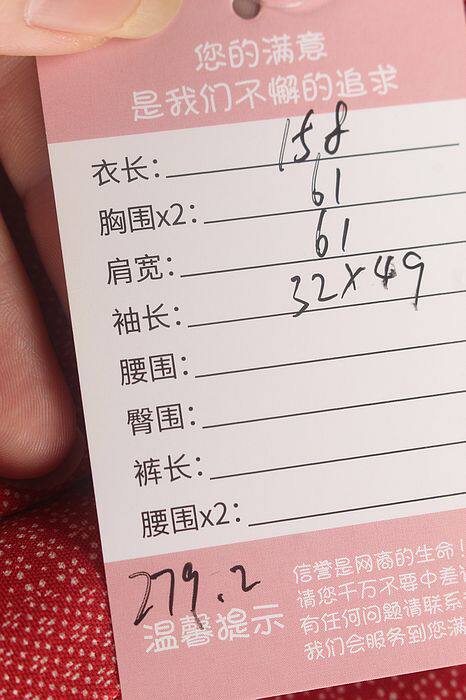 您的满意
是我们不懈的追求
衣长: 158
胸围x2: 61
肩宽: 61
袖长: 32x49
腰围:
臀围:
裤长:
腰围x2:
279.2
温馨提示
信誉是网商的生命!
请您千万不要中差
有任何问题请联系
我们会服务到您满